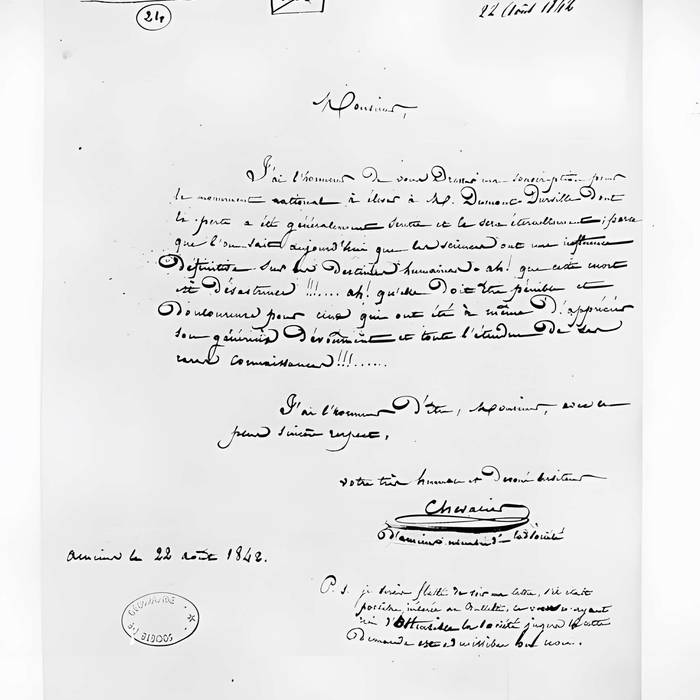 21
22 Août 1842
Monsieur,
J'ai l'honneur de vous une souscription pour
le monument national à élever à M. Dumont Durville dont
la perte a été généralement sentie et le sera éternellement; parce
que l'on sait aujourd'hui que les sciences ont une influence
définitive sur les destinées humaines. ah! que cette mort
est désastreuse!!!.... ah! qu'elle doit être pénible et
douloureuse pour ceux qui ont été à même d'apprécier
son généreux dévoument et toute l'étendue de ses
rares connaissances!!!......
J'ai l'honneur d'être, Monsieur, avec le
plus sincère respect,
votre très humble et dévoué serviteur
Chevalier
d'amiens membre de la Société
amiens le 22 août 1842.
P. S. je serais flatté de voir ma lettre, s'il était
possible, insérée au Bulletin, ayant
rien d' la société jugera si cette
demande est admissible ou non.
SOCIÉTÉ DE GÉOGRAPHIE